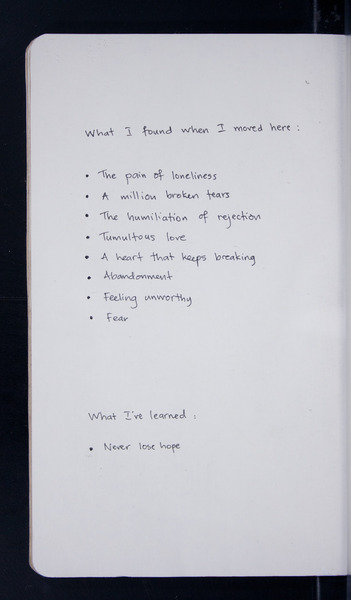 What I found when I moved here :
• The pain of loneliness
• A million broken tears
• The humiliation of rejection
• Tumultous love
• A heart that keeps breaking
• Abandonment
• Feeling unworthy
• Fear
What I've learned :
• Never lose hope